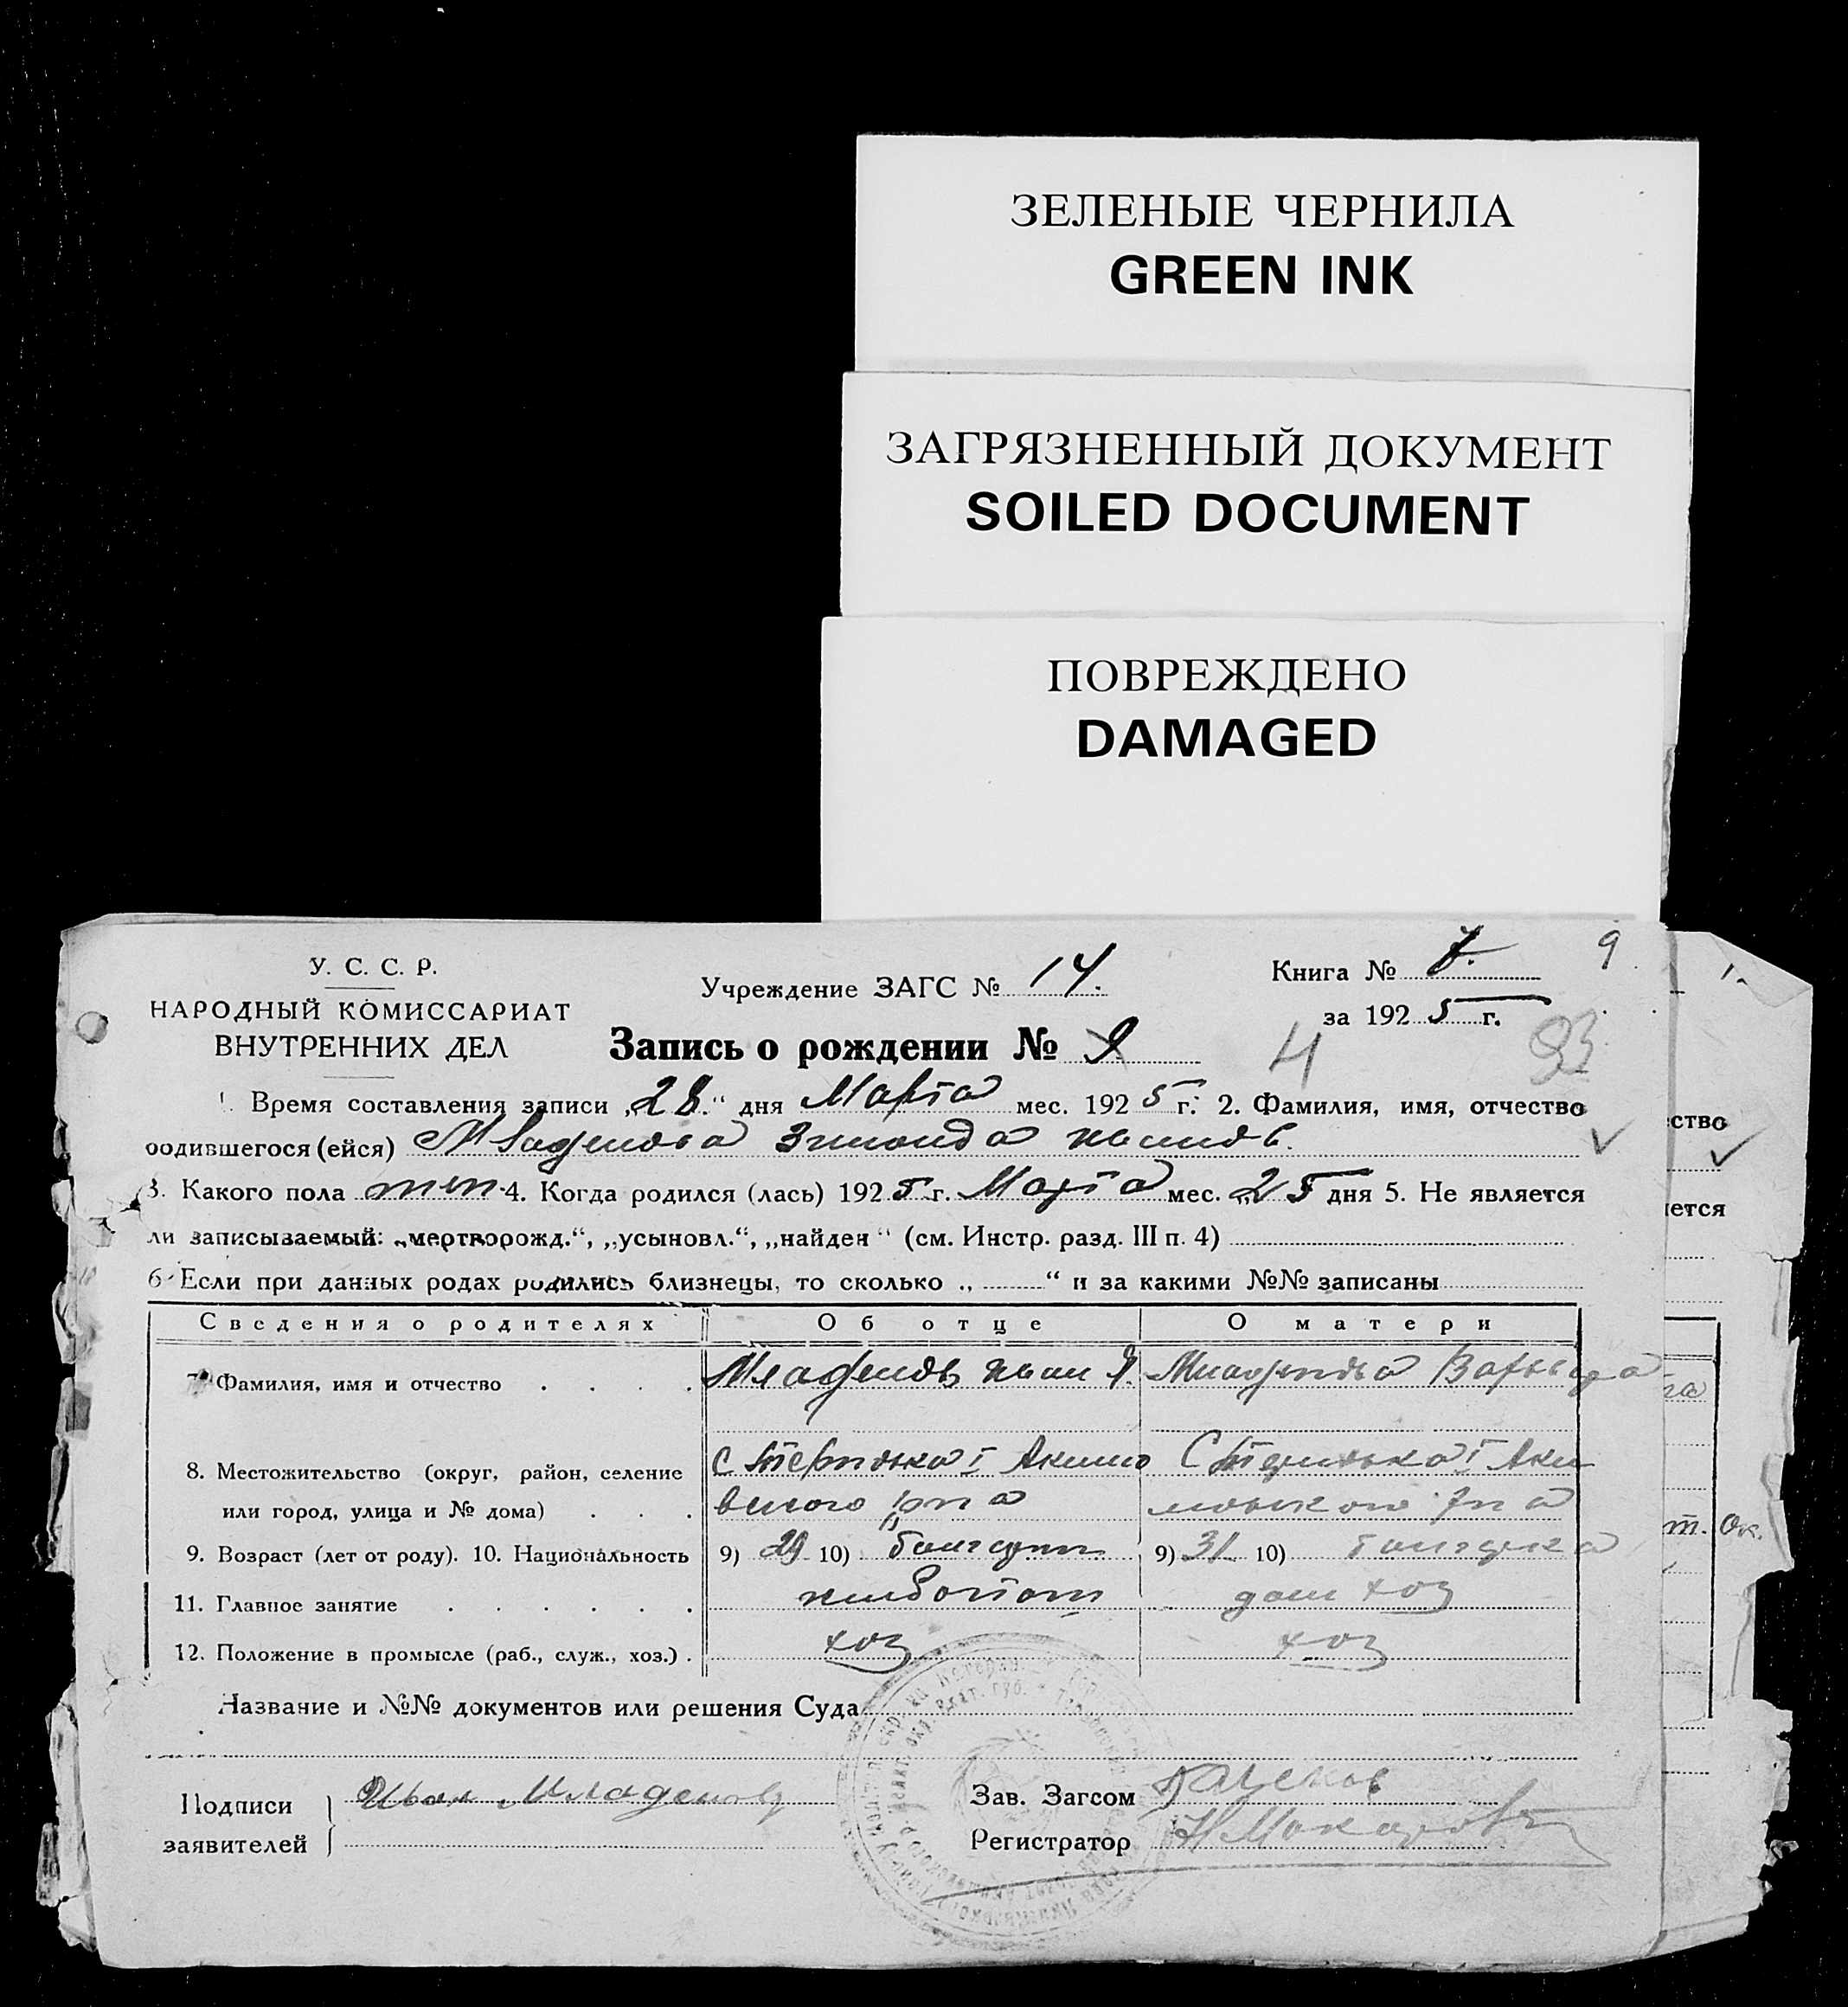 ЗЕЛЕНЫЕ ЧЕРНИЛА
GREEN INK
ЗАГРЯЗНЕННЫЙ ДОКУМЕНТ
SOILED DOCUMENT
ПОВРЕЖДЕНО
DAMAGED
У. С. С. Р.
НАРОДНЫЙ КОМИССАРИАТ
ВНУТРЕННИХ ДЕЛ
Учреждение ЗАГС № 14.
Книга № 7. 9
за 1925 г.
Запись о рождении № 9 4 93
1. Время составления записи „28.“ дня Марта мес. 1925 г. 2. Фамилия, имя, отчество
родившегося (ейся) Младенова
3. Какого пола жен. 4. Когда родился (лась) 1925 г. Марта мес. „25 дня 5. Не является
ли записываемый: „мертворожд.“, „усыновл.“, „найден“ (см. Инстр. разд. III п. 4)
6. Если при данных родах родились близнецы, то сколько „ “ и за какими №№ записаны
Сведения о родителях Об отце О матери
7. Фамилия, имя и отчество Младенов Иван Младенова
8. Местожительство (округ, район, селение С Акимо С Аки
или город, улица и № дома) вского р на мовского р на
9. Возраст (лет от роду). 10. Национальность 9) 29 10) болгарин 9) 31 10) болгарка
11. Главное занятие хлебопаш дом хоз
12. Положение в промысле (раб., служ., хоз.) хоз хоз
Название и №№ документов или решения Суда
Подписи заявителей Иван Младенов
Зав. Загсом
Регистратор Н Макаров
ство
ется
т. Ок.